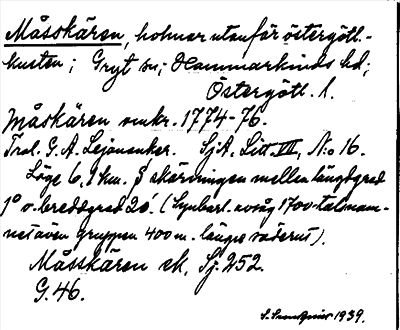 Måsskären, holmar utanför östergötl.-
kusten; Gryt sn; Hammarkinds hd;
Östergötl. l.
Måskären omkr. 1774-76.
Trol. G. A. Lejonanker. SjA. Litt. VII, N:o 16.
Läge 6,9 km. S skärningen mellan längdgrad
1° o. breddgrad 20. (Synbarl. avsåg 1700-talsnam-
net även gruppen 400 m. längre söderut).
Måsskären sk. Sj. 252.
G. 46.
1939.